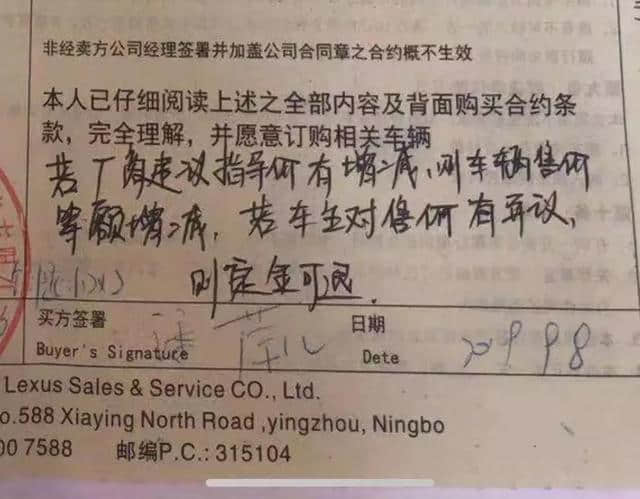 非经卖方公司经理签署并加盖公司合同章之合约概不生效
本人已仔细阅读上述之全部内容及背面购买合约条
款，完全理解，并愿意订购相关车辆
若厂商建议指导价有增减，则车辆售价
等额增减，若车主对售价有异议，
则定金可退.
买方签署
日期
Buyer's Signature
Dete
2019 9 8
Lexus Sales & Service CO., Ltd.
o.588 Xiaying North Road ,yingzhou, Ningbo
00 7588 邮编P.C.: 315104